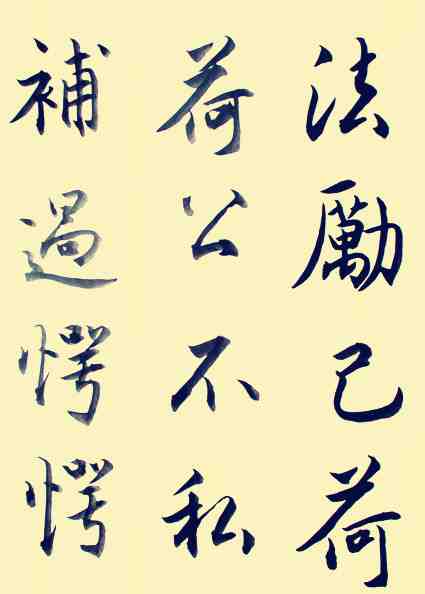 法勵己荷
荷公不私
補過愕愕